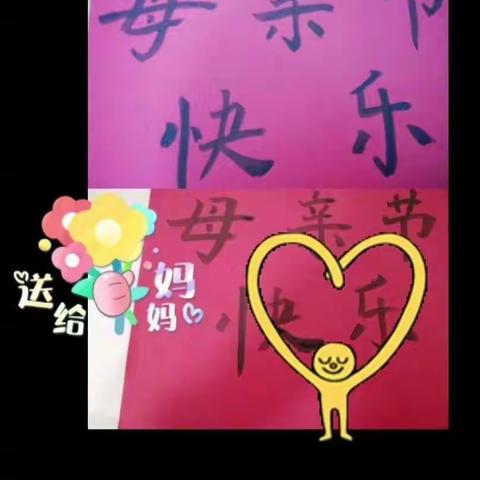 母亲节
快乐
母亲节
快乐
送给妈妈